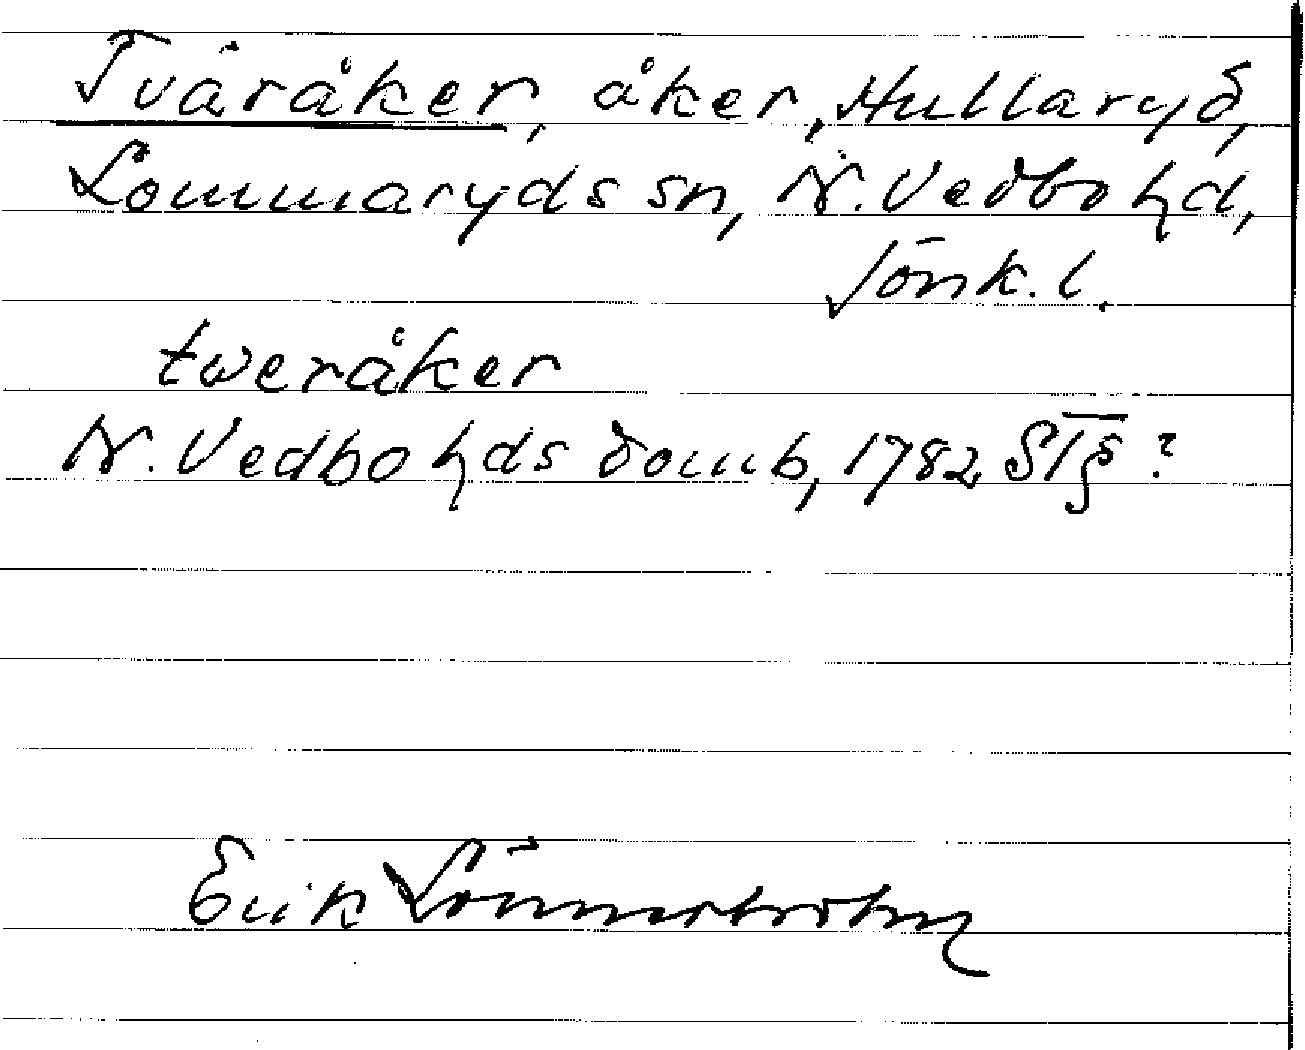 Tväråker, åker, Hullaryd,
Lommaryds sn, N. Vedbo hd,
Jönk. l.
tweråker
N. Vedbo hds domb, 1782 ?
Erik